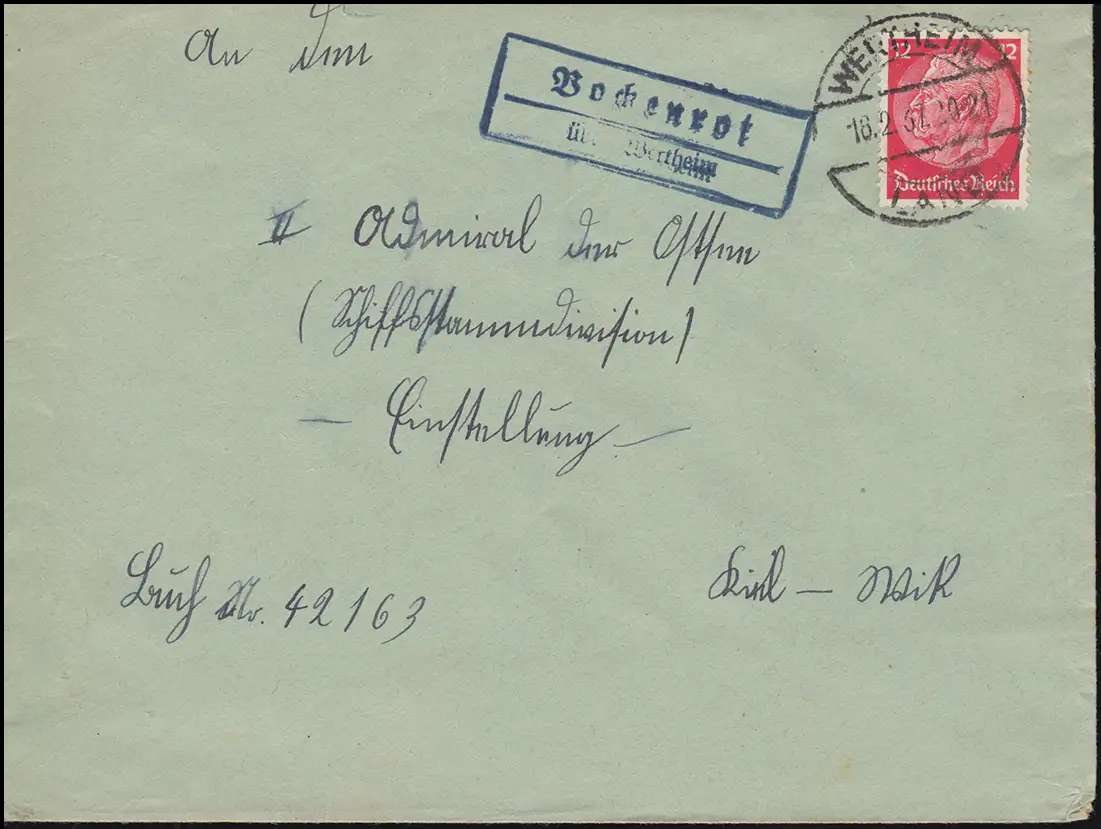 An den
Bockenrot
über Wertheim
WERTHEIM
18.2.37.20-21
LAND
12 12
Deutsches Reich
II Admiral der Ostsee
(Schiffsstammdivision)
— Einstellung —
Buch Nr. 42163
Kiel — Wik